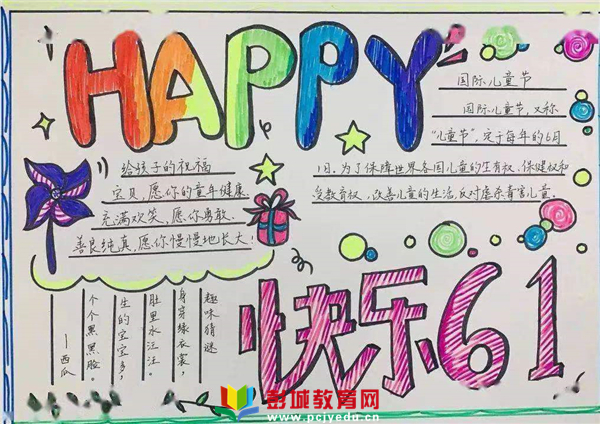 HAPPY
国际儿童节
国际儿童节,又称
“儿童节”,定于每年的6月
1日,为了保障世界各国儿童的生存权、保健权和
受教育权,改善儿童的生活,反对虐杀毒害儿童.
给孩子的祝福
宝贝,愿你的童年健康
充满欢笑,愿你勇敢.
善良纯真,愿你慢慢地长大!
快乐61
趣味猜谜
身穿绿衣裳,
肚里水汪汪。
生的宝宝多,
个个黑黑脸。
—西瓜
彭城教育网
www.pcjyedu.cn